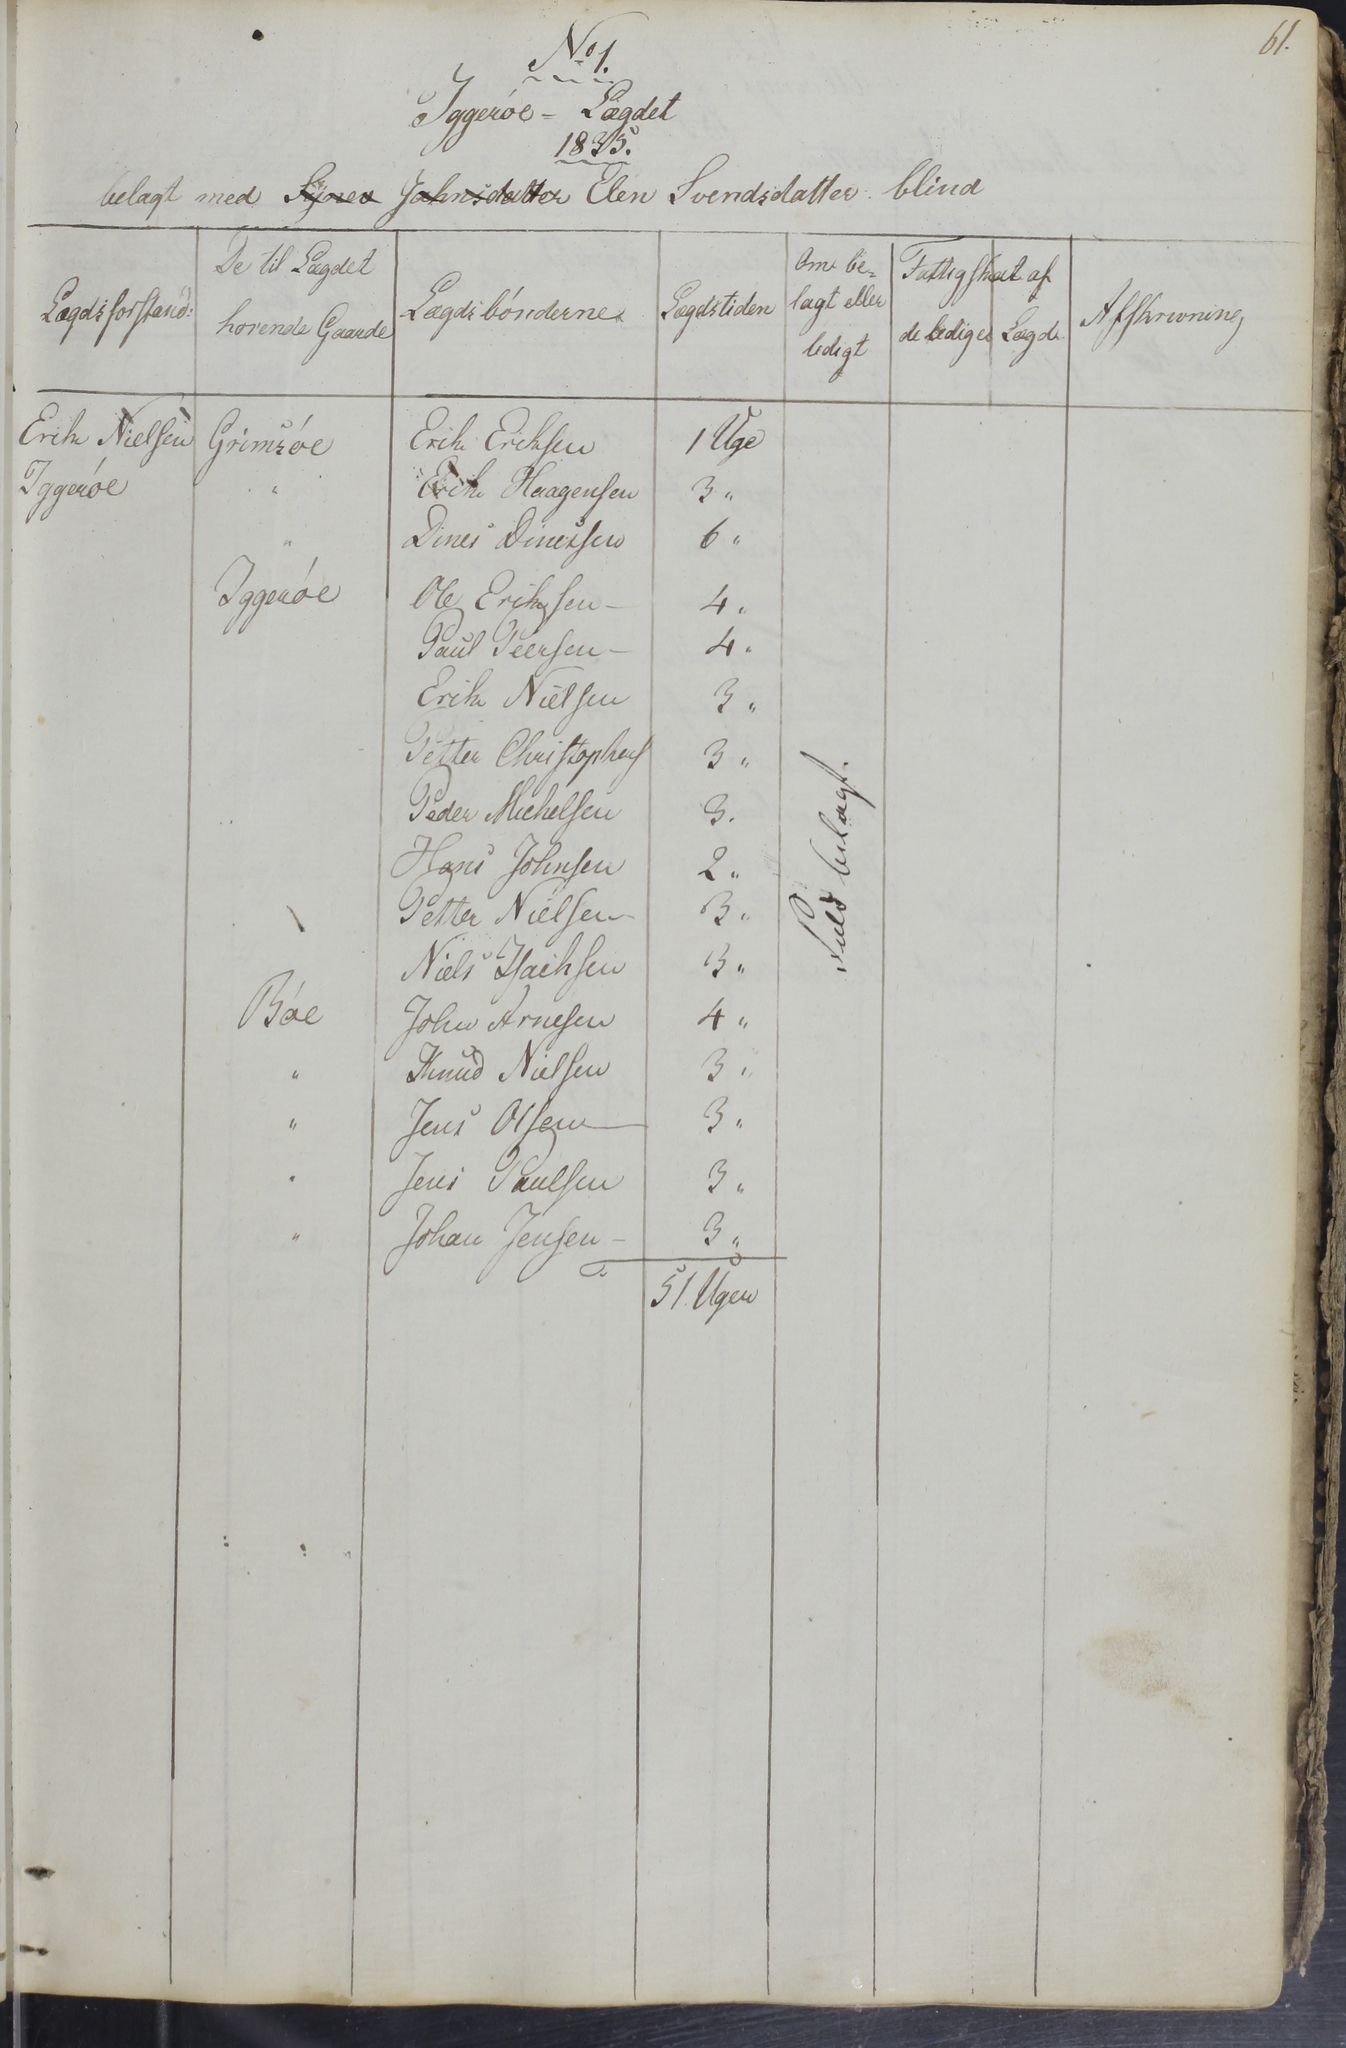 61.
No 1.
Iggeróe - Lægdet
1835.
belagt med Johnsdatter Elen Svendsdatter blind
Lægdsforstand:
De til Lægdet
horende Gaarde
Lægdsbónderne
Lægdstiden
Om be-
lagt eller
ledigt
Fattigskat af
de ledige Lægde
Afskrivning
Erik Nielsen Grimsóe Erik Eriksen 1 Uge
Iggeróe " Erik Haagensen 3 "
" Dines Dinessen 6 "
Iggeróe Ole Eriksen - 4 "
Paul Peersen - 4 "
Erik Nielsen 3 "
Petter Christophers 3 "
Peder Michelsen 3.
Hans Johnsen 2 "
Petter Nielsen 3 "
Niels Isachsen 3 "
Bóe John Arnesen 4 "
" Knud Nielsen 3 "
" Jens Olsen 3 "
" Jens Paulsen 3 "
" Johan Jensen - 3 "
51 Uger
Fuld belagt.